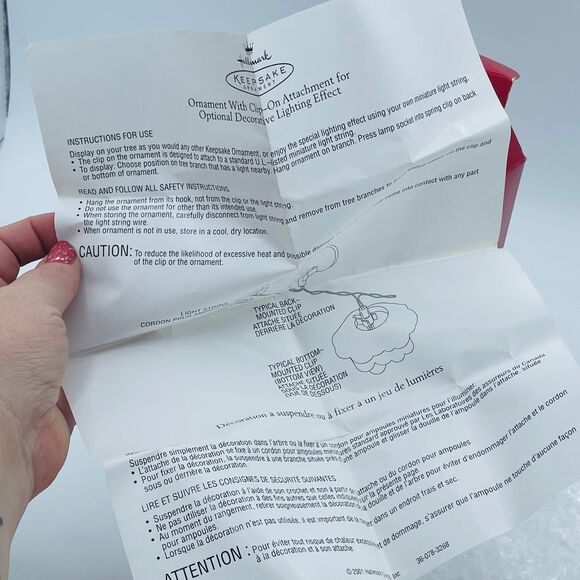 Hallmark
KEEPSAKE
ORNAMENT
Ornament With Clip-On Attachment for
Optional Decorative Lighting Effect
INSTRUCTIONS FOR USE
Display on your tree as you would any other Keepsake Ornament, or enjoy the special lighting effect using your own miniature light string.
• The clip on the ornament is designed to attach to a standard U L-listed miniature light string. Press lamp socket into spring clip on back
• To display: Choose position on tree branch that has a light nearby. Hang ornament on branch.
or bottom of ornament.
READ AND FOLLOW ALL SAFETY INSTRUCTIONS
• Hang the ornament from its hook, not from the clip or the light string.
• Do not use the ornament for other than its intended use.
• When storing the ornament, carefully disconnect from light string and remove from tree branches to the clip and
the light string wire.
• When ornament is not in use, store in a cool, dry location.
CAUTION: To reduce the likelihood of excessive heat and possible come into contact with any part
of the clip or the ornament.
LIGHT STRING
CORDON
TYPICAL BACK–
MOUNTED CLIP
ATTACHE SITUÉE
DERRIÈRE LA DÉCORATION
TYPICAL BOTTOM–
MOUNTED CLIP
(BOTTOM VIEW)
ATTACHE SITUÉE
SOUS LA DÉCORATION
(VUE DE DESSOUS)
Décoration à suspendre ou à fixer à un jeu de lumières
Suspendre simplement la décoration dans l'arbre ou la fixer à un cordon pour ampoules miniatures pour l'illuminer.
• L'attache de la décoration se fixe à un cordon pour ampoules miniatures standard approuvé par Les Laboratoires des assureurs du Canada
• Pour fixer la décoration, la suspendre à une branche située près d'une ampoule et glisser la douille de l'ampoule dans l'attache, située
sous ou derrière la décoration.
LIRE ET SUIVRE LES CONSIGNES DE SÉCURITÉ SUIVANTES
• Suspendre la décoration à l'aide de son crochet et non à partir de l'attache ou du cordon pour ampoules.
• Ne pas utiliser la décoration à des fins autres que celles indiquées sur la présente page.
• Au moment du rangement, retirer soigneusement la décoration de la douille et de l'arbre pour éviter d'endommager l'attache et le cordon
pour ampoules.
• Lorsque la décoration n'est pas utilisée, il est important de la ranger dans un endroit frais et sec.
ATTENTION : Pour éviter tout risque de chaleur excessive et de dommage, s'assurer que l'ampoule ne touche d'aucune façon
à la décoration et à son attache.
© 2001 Hallmark Inc.
36-078-3268